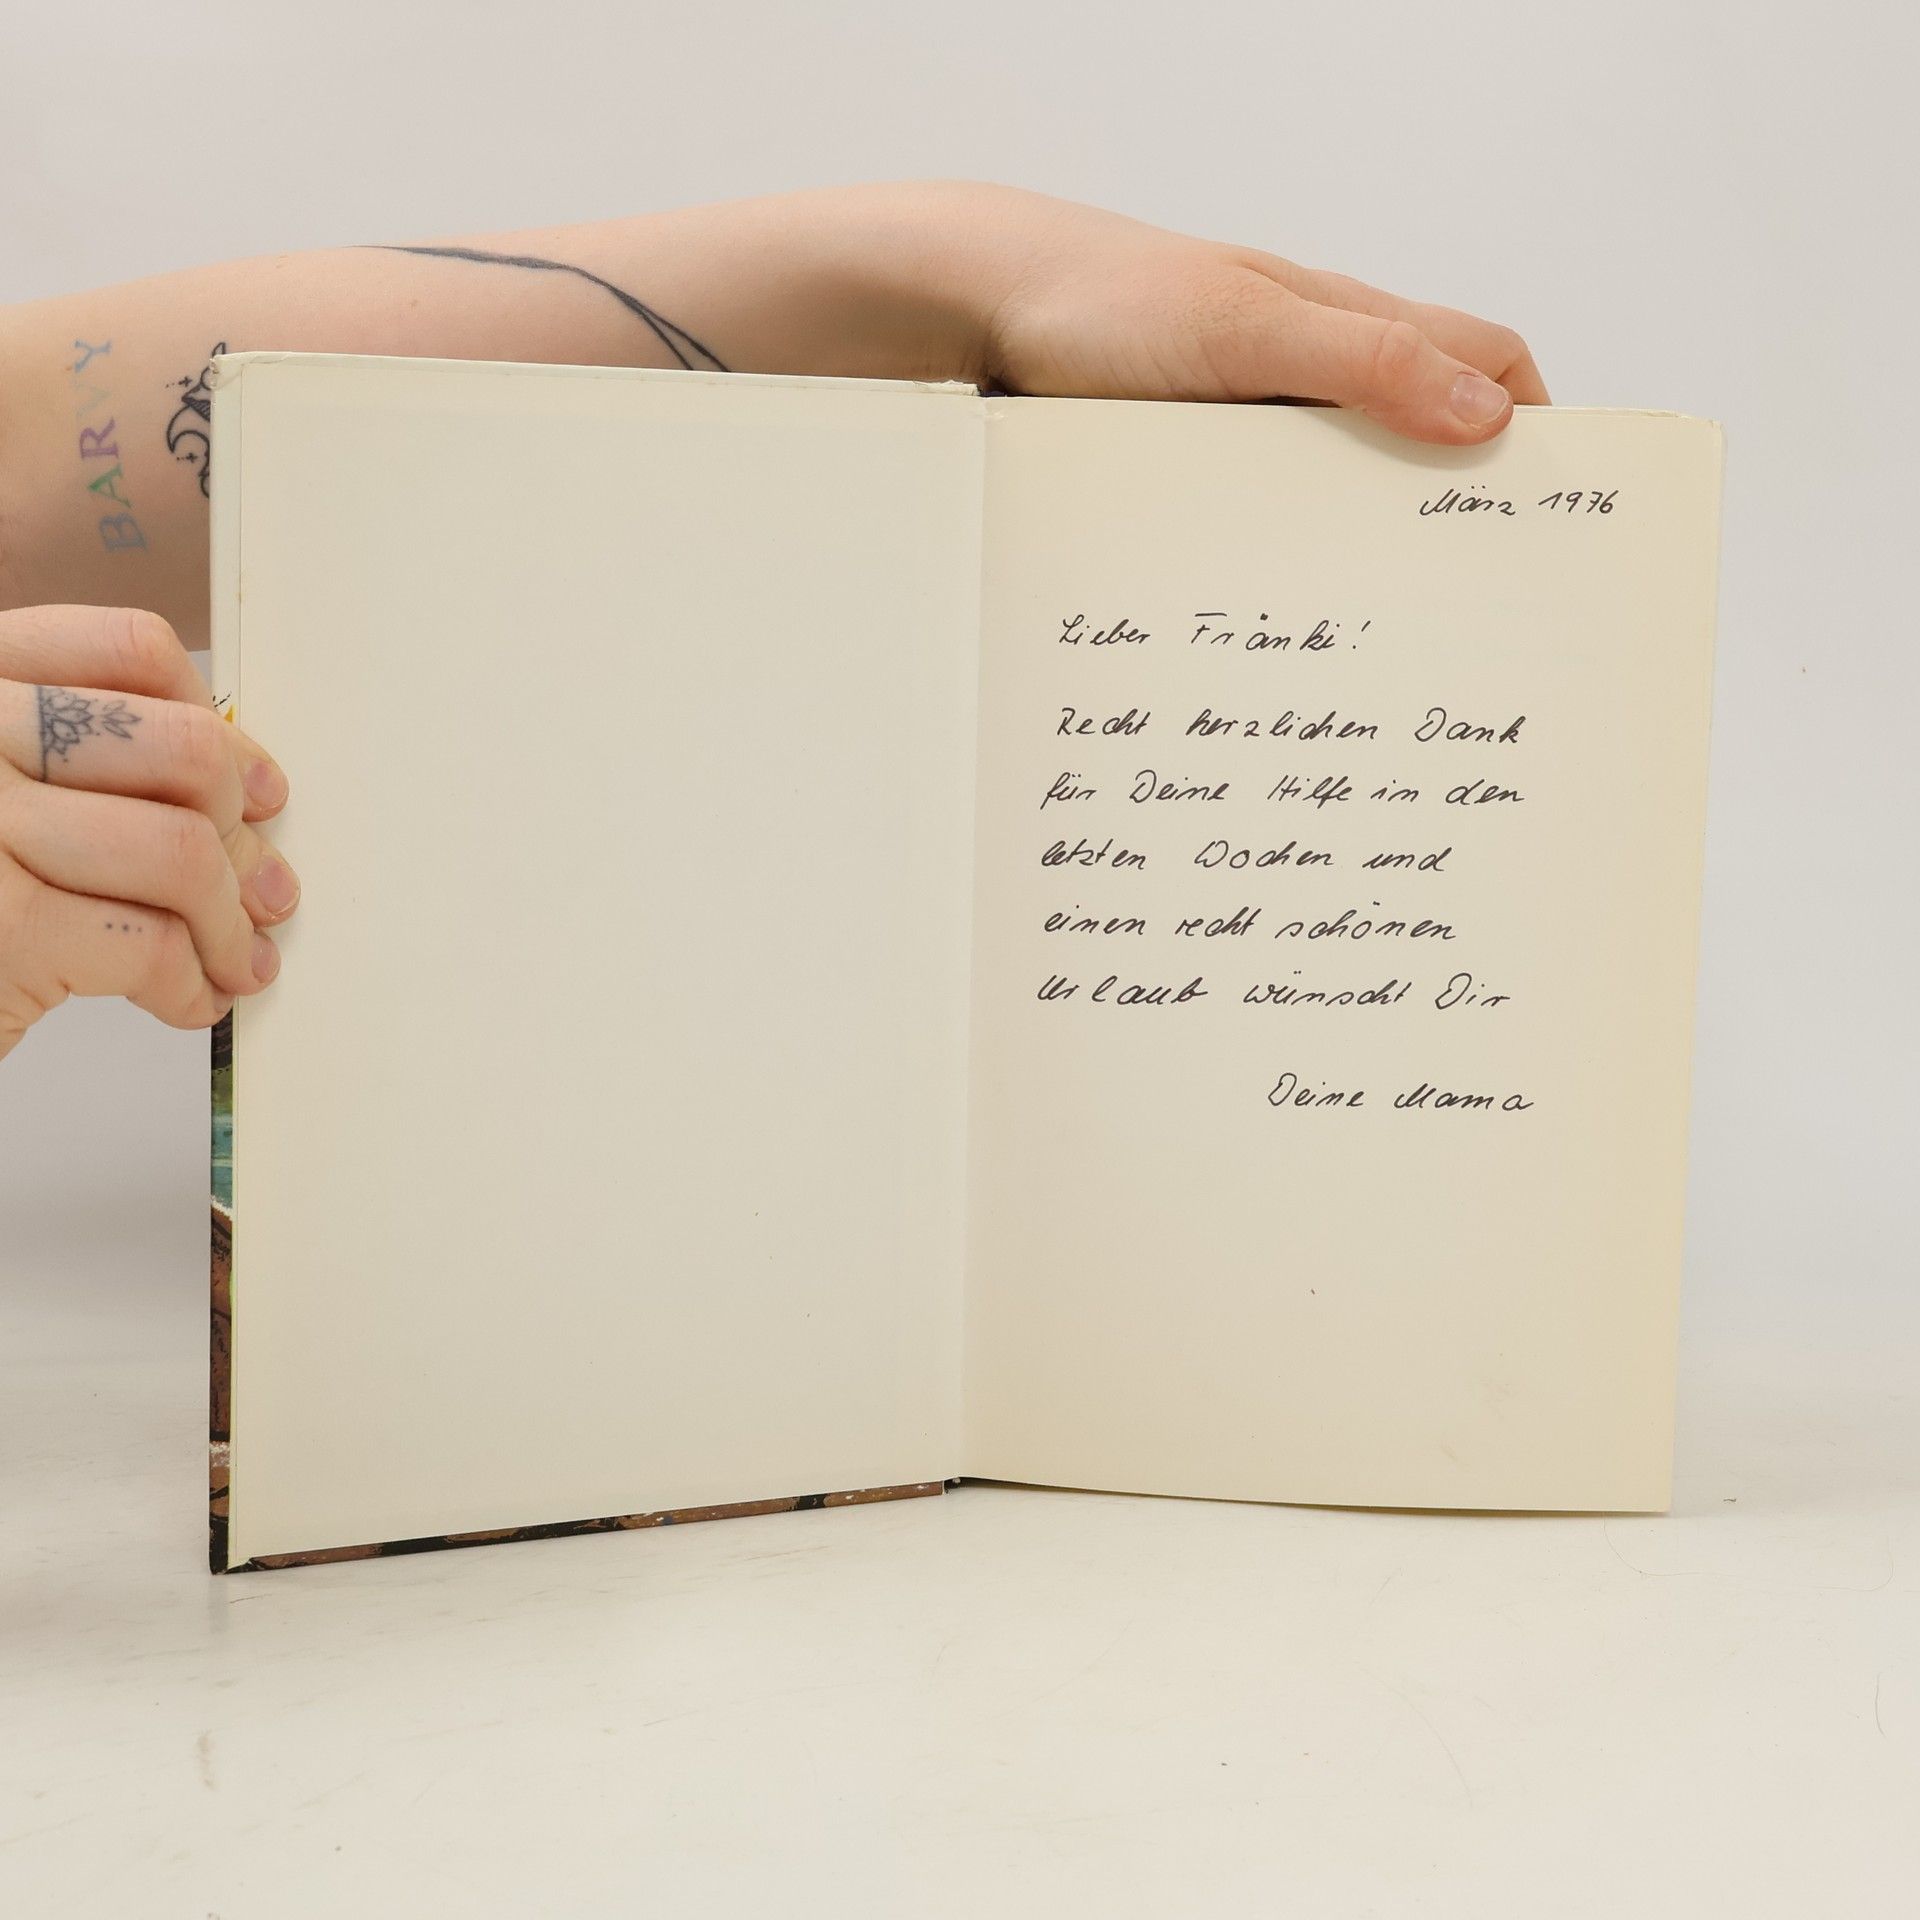 BARVY
März 1976
Lieber Fränki!
Recht herzlichen Dank
für Deine Hilfe in den
letzten Wochen und
einen recht schönen
Urlaub wünscht Dir
Deine Mama